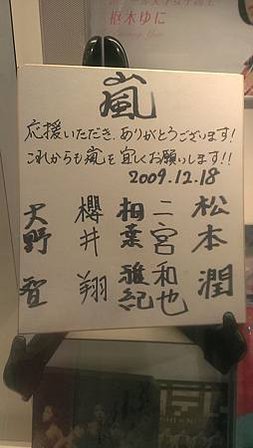 枢木ゆに
嵐
応援いただき、ありがとうございます!
これからも嵐を宜しくお願いします!!
2009.12.18
大野智
櫻井翔
相葉雅紀
二宮和也
松本潤